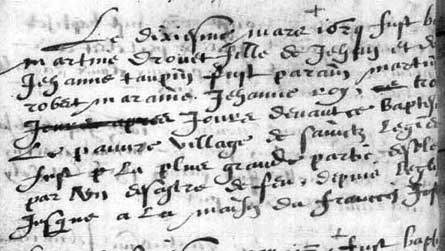 Le dixiesme mars 1639 fust b
martine Drouet fille de Jehan et de
Jehanne taupin fust parain martin
robert maraine Jehanne roy, ce tro
Jours devant ce Baptes
Le pauvre village de Leger
fust p la plus grande partie desole
par un desastre de feu, depuis legl
Jusque a la maison du francois